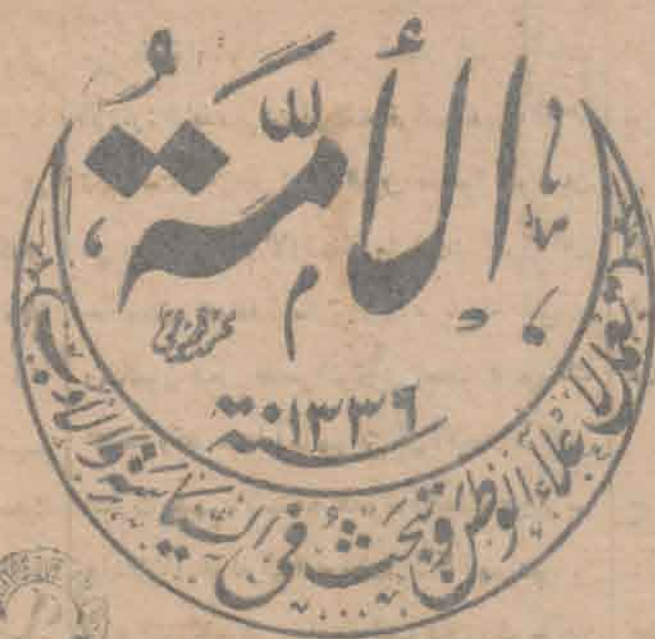 الأُمَّةُ
سنة ١٣٣٦
تعمل لإعلاء الوطن وتبحث في السياسة والأدب